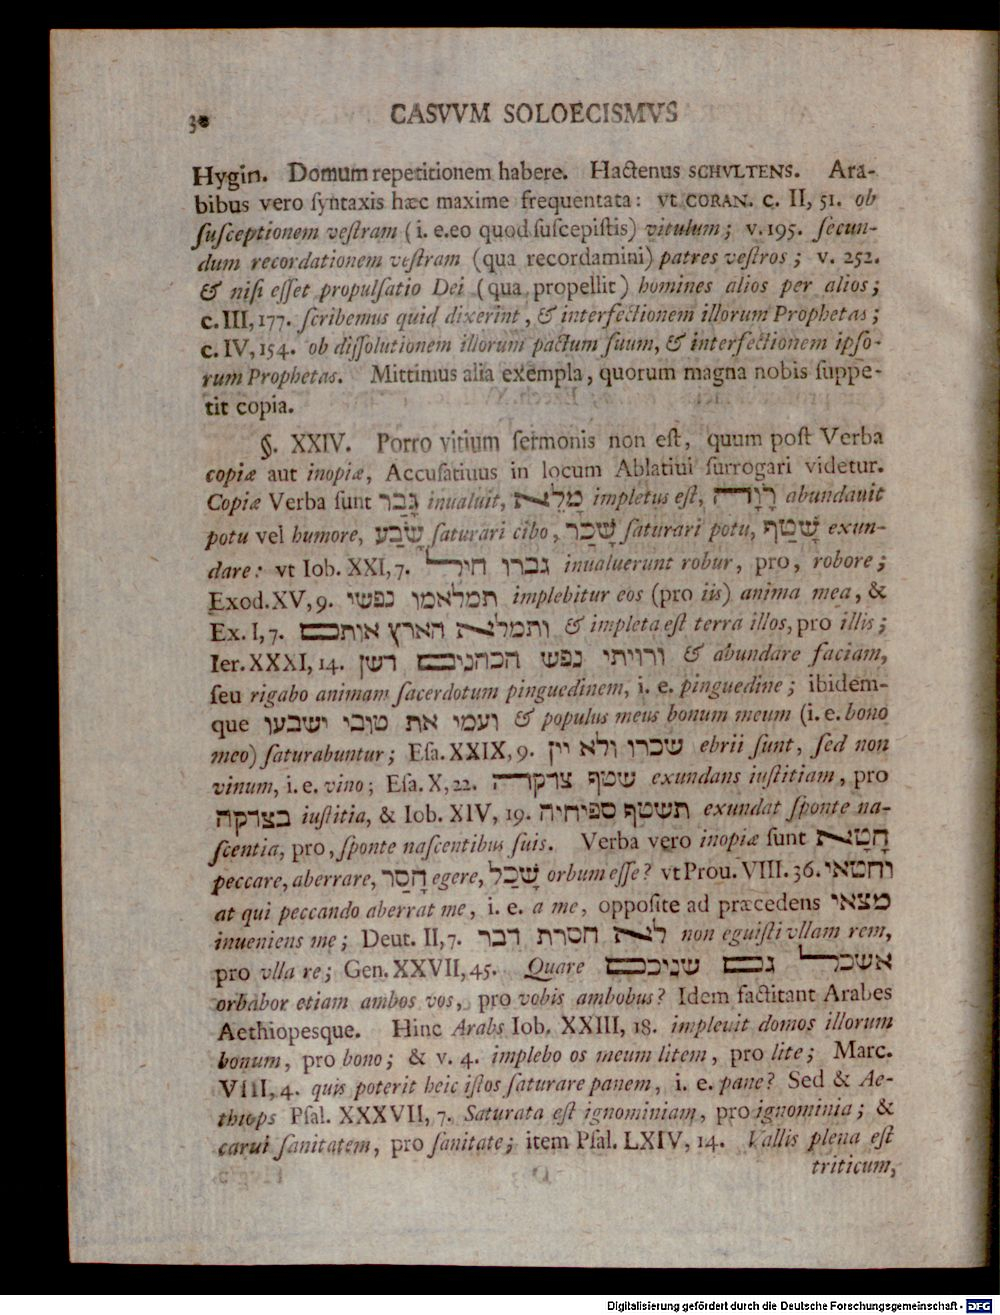 CASVVM SOLOECISMVS
Hygin. Domum repetitionem habere. Hactenus SCHVLTENS. Ara-
bibus vero ſyntaxis hæc maxime frequentata: vt CORAN. c. II, 51. ob
ſuſceptionem veſtram (i. e. eo quod ſuſcepiſtis) vitulum; v. 195. ſecun-
dum recordationem veſtram (qua recordamini) patres veſtros; v. 252.
& niſi eſſet propulſatio Dei (qua propellit) homines alios per alios;
c. III, 177. ſcribemus quid dixerint, & interfectionem illorum Prophetas;
c. IV, 154. ob diſſolutionem illorum pactum ſuum, & interfectionem ipſo-
rum Prophetas. Mittimus alia exempla, quorum magna nobis ſuppe-
tit copia.
§. XXIV. Porro vitium ſermonis non eſt, quum poſt Verba
copiæ aut inopiæ, Accuſatiuus in locum Ablatiui ſurrogari videtur.
Copiæ Verba ſunt גָּבַר inualuit, מָלֵא impletus eſt, רָוָה abundauit
potu vel humore, שָׂבַע ſaturari cibo, שָׁכַר ſaturari potu, שָׁטַף exun-
dare: vt Iob. XXI, 7. גברו חיל inualuerunt robur, pro, robore;
Exod. XV, 9. תמלאמו נפשי implebitur eos (pro iis) anima mea, &
Ex. I, 7. ותמלא הארץ אותם & impleta eſt terra illos, pro illis;
Ier. XXXI, 14. ורויתי נפש הכהנים דשן & abundare faciam,
ſeu rigabo animam ſacerdotum pinguedinem, i. e. pinguedine; ibidem-
que ועמי את טובי ישבעו & populus meus bonum meum (i. e. bono
meo) ſaturabuntur; Eſa. XXIX, 9. שכרו ולא יין ebrii ſunt, ſed non
vinum, i. e. vino; Eſa. X, 22. שטף צדקה exundans iuſtitiam, pro
בצדקה iuſtitia, & Iob. XIV, 19. תשטף ספיחיה exundat ſponte na-
ſcentia, pro, ſponte naſcentibus ſuis. Verba vero inopiæ ſunt חָטָא
peccare, aberrare, חָסַר egere, שָׁכַל orbum eſſe? vt Prou. VIII. 36. וחטאי
at qui peccando aberrat me, i. e. a me, oppoſite ad præcedens מצאי
inueniens me; Deut. II, 7. לא חסרת דבר non eguiſti vllam rem,
pro vlla re; Gen. XXVII, 45. Quare אשכל גם שניכם
orbabor etiam ambos vos, pro vobis ambobus? Idem factitant Arabes
Aethiopesque. Hinc Arabs Iob. XXIII, 18. impleuit domos illorum
bonum, pro bono; & v. 4. implebo os meum litem, pro lite; Marc.
VIII, 4. quis poterit heic iſtos ſaturare panem, i. e. pane? Sed & Ae-
thiops Pſal. XXXVII, 7. Saturata eſt ignominiam, pro ignominia; &
carui ſanitatem, pro ſanitate; item Pſal. LXIV, 14. Vallis plena eſt
triticum,
Digitalisierung gefördert durch die Deutsche Forschungsgemeinschaft - DFG